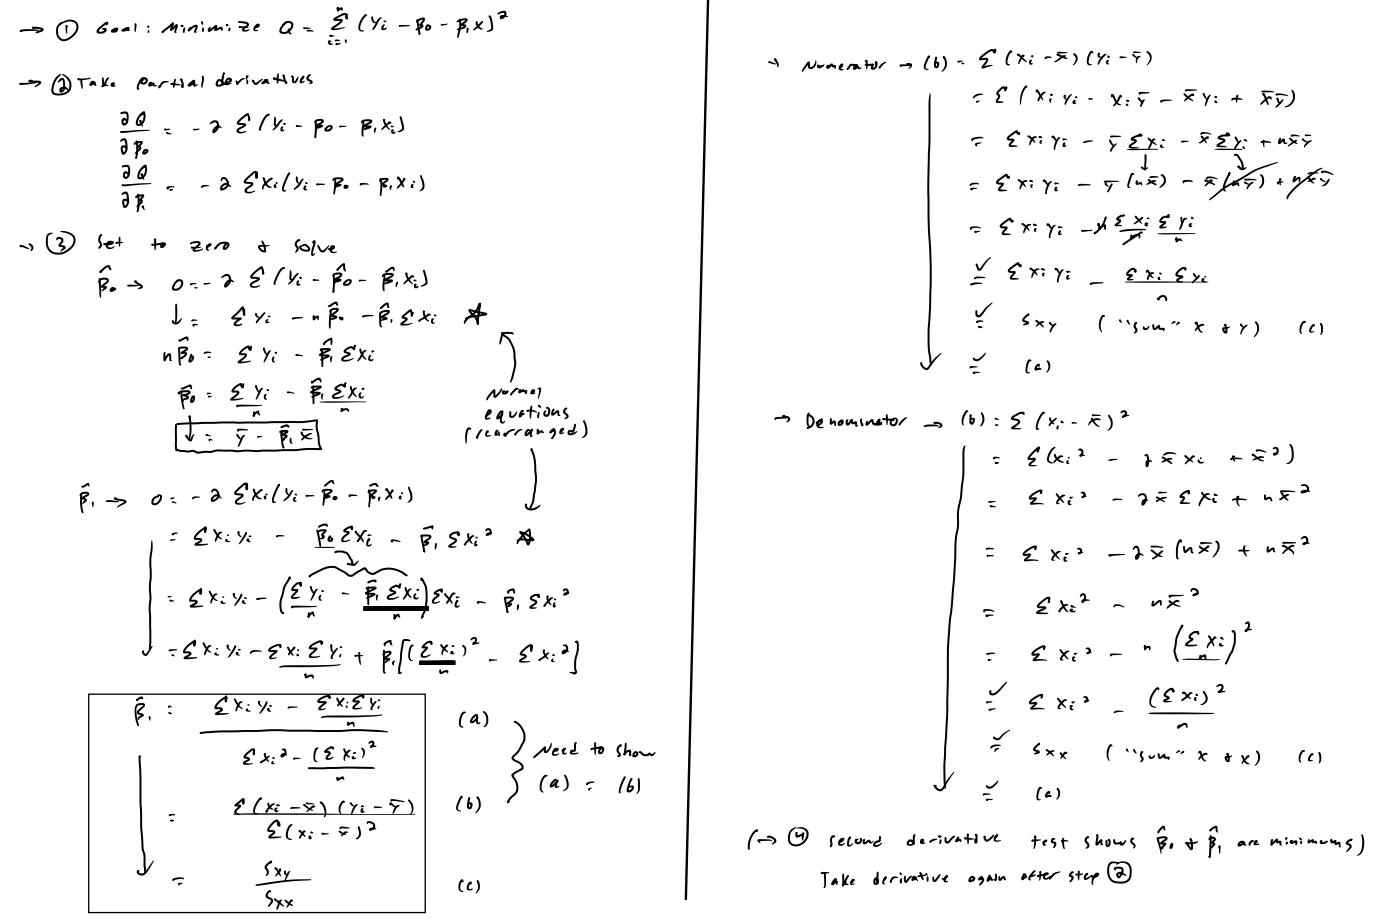 → ① Goal: Minimize Q = Σ_{i=1}^{n} (Yi − β0 − β1X)²
→ ② Take partial derivatives
∂Q/∂β0 = −2 Σ(Yi − β0 − β1Xi)
∂Q/∂β1 = −2 ΣXi(Yi − β0 − β1Xi)
→ ③ Set to zero & solve
β̂0 → 0 = −2 Σ(Yi − β̂0 − β̂1Xi)
↓ = ΣYi − nβ̂0 − β̂1ΣXi ☆
nβ̂0 = ΣYi − β̂1ΣXi
β̂0 = ΣYi/n − β̂1ΣXi/n
↓ = Ȳ − β̂1X̄
Normal
equations
(rearranged)
β̂1 → 0 = −2 ΣXi(Yi − β̂0 − β̂1Xi)
= ΣXiYi − β̂0ΣXi − β̂1ΣXi² ☆
= ΣXiYi − (ΣYi/n − β̂1ΣXi/n)ΣXi − β̂1ΣXi²
= ΣXiYi − ΣXiΣYi/n + β̂1[(ΣXi)²/n − ΣXi²]
β̂1 = (ΣXiYi − ΣXiΣYi/n) / (ΣXi² − (ΣXi)²/n) (a)
= Σ(Xi − X̄)(Yi − Ȳ) / Σ(Xi − X̄)² (b)
= Sxy / Sxx (c)
Need to show
(a) = (b)
→ Numerator → (b) = Σ(Xi − X̄)(Yi − Ȳ)
= Σ(XiYi − XiȲ − X̄Yi + X̄Ȳ)
= ΣXiYi − ȲΣXi − X̄ΣYi + nX̄Ȳ
= ΣXiYi − Ȳ(nX̄) − X̄(nȲ) + nX̄Ȳ
= ΣXiYi − n ΣXi/n ΣYi/n
✓= ΣXiYi − ΣXiΣYi/n
✓= Sxy ("sum" X & Y) (c)
✓= (a)
→ Denominator → (b) = Σ(Xi − X̄)²
= Σ(Xi² − 2X̄Xi + X̄²)
= ΣXi² − 2X̄ΣXi + nX̄²
= ΣXi² − 2X̄(nX̄) + nX̄²
= ΣXi² − nX̄²
= ΣXi² − n(ΣXi/n)²
✓= ΣXi² − (ΣXi)²/n
✓= Sxx ("sum" X & X) (c)
✓= (a)
(→ ④ Second derivative test shows β̂0 & β̂1 are minimums)
Take derivative again after step ②